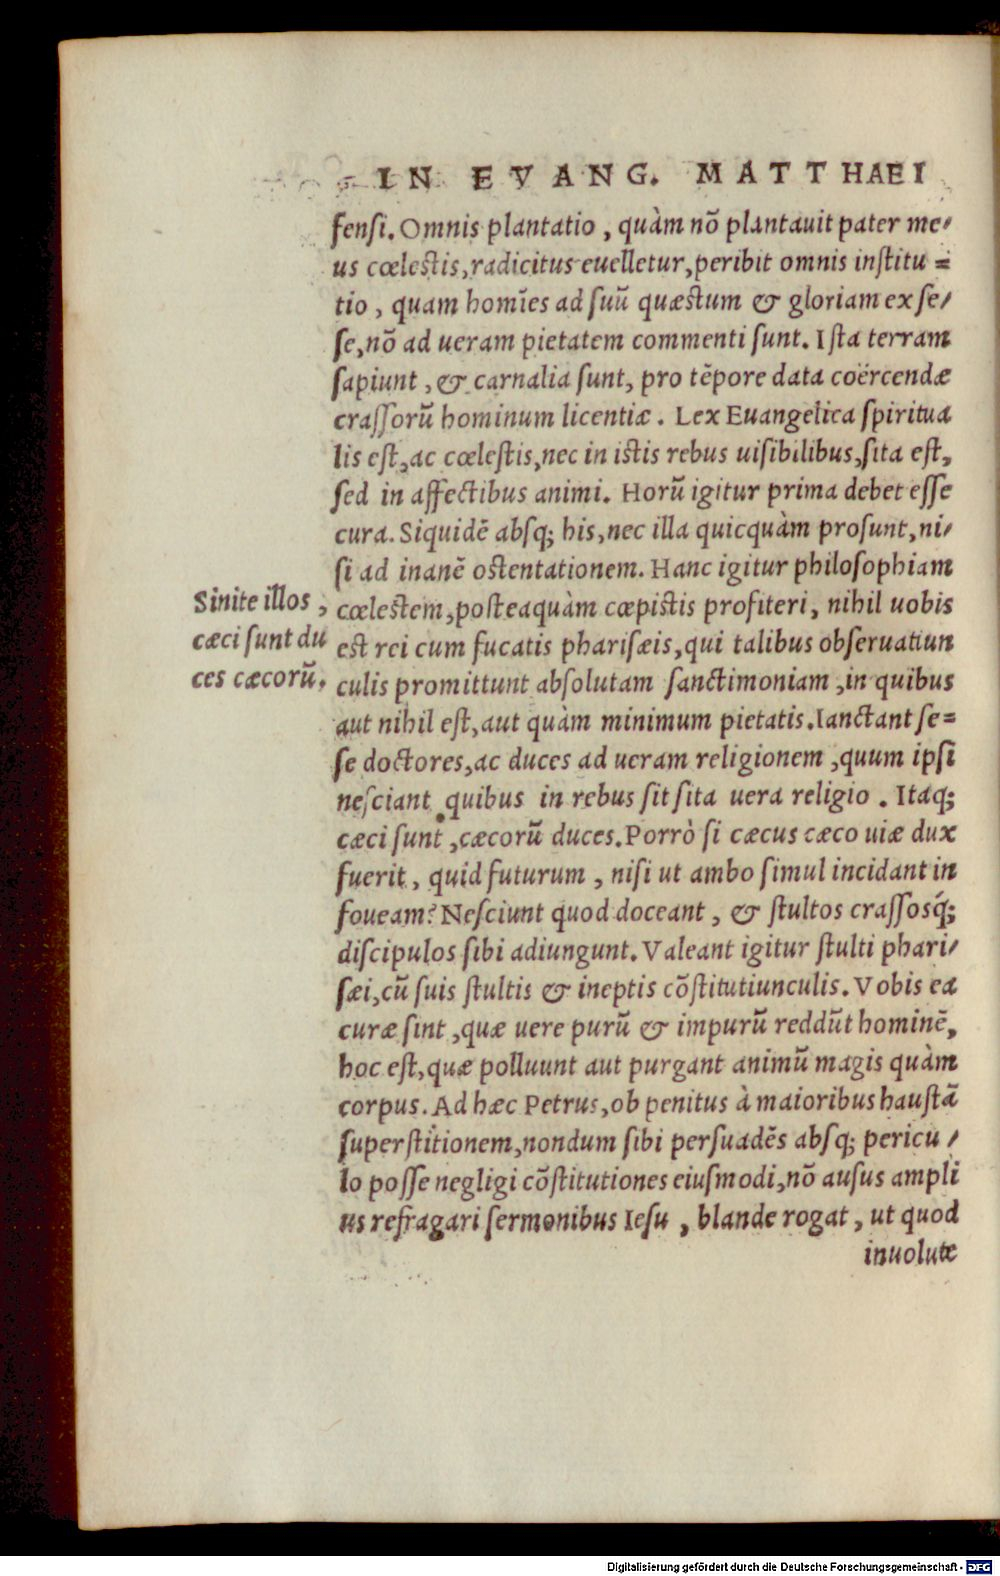 IN EVANG. MATTHAEI
fensi. Omnis plantatio, quàm nō plantauit pater me/
us cœlestis, radicitus euelletur, peribit omnis institu=
tio, quam homīes ad suū quæstum & gloriam ex se/
se, nō ad ueram pietatem commenti sunt. Ista terram
sapiunt, & carnalia sunt, pro tēpore data coërcendæ
crassorū hominum licentiæ. Lex Euangelica spiritua
lis est, ac cœlestis, nec in istis rebus uisibilibus, sita est,
sed in affectibus animi. Horū igitur prima debet esse
cura. Siquidē absq; his, nec illa quicquàm prosunt, ni/
si ad inanē ostentationem. Hanc igitur philosophiam
Sinite illos,
cæci sunt du
ces cæcorū.
cœlestem, posteaquàm cœpistis profiteri, nihil uobis
est rei cum fucatis pharisæis, qui talibus obseruatiun
culis promittunt absolutam sanctimoniam, in quibus
aut nihil est, aut quàm minimum pietatis. Ianctant se=
se doctores, ac duces ad ueram religionem, quum ipsi
nesciant quibus in rebus sit sita uera religio. Itaq;
cæci sunt, cæcorū duces. Porrò si cæcus cæco uiæ dux
fuerit, quid futurum, nisi ut ambo simul incidant in
foueam? Nesciunt quod doceant, & stultos crassosq́;
discipulos sibi adiungunt. Valeant igitur stulti phari/
sæi, cū suis stultis & ineptis cōstitutiunculis. Vobis ea
curæ sint, quæ uere purū & impurū reddūt hominē,
hoc est, quæ polluunt aut purgant animū magis quàm
corpus. Ad hæc Petrus, ob penitus à maioribus haustā
superstitionem, nondum sibi persuadēs absq; pericu/
lo posse negligi cōstitutiones eiusmodi, nō ausus ampli
us refragari sermonibus Iesu, blande rogat, ut quod
inuolute
Digitalisierung gefördert durch die Deutsche Forschungsgemeinschaft - DFG